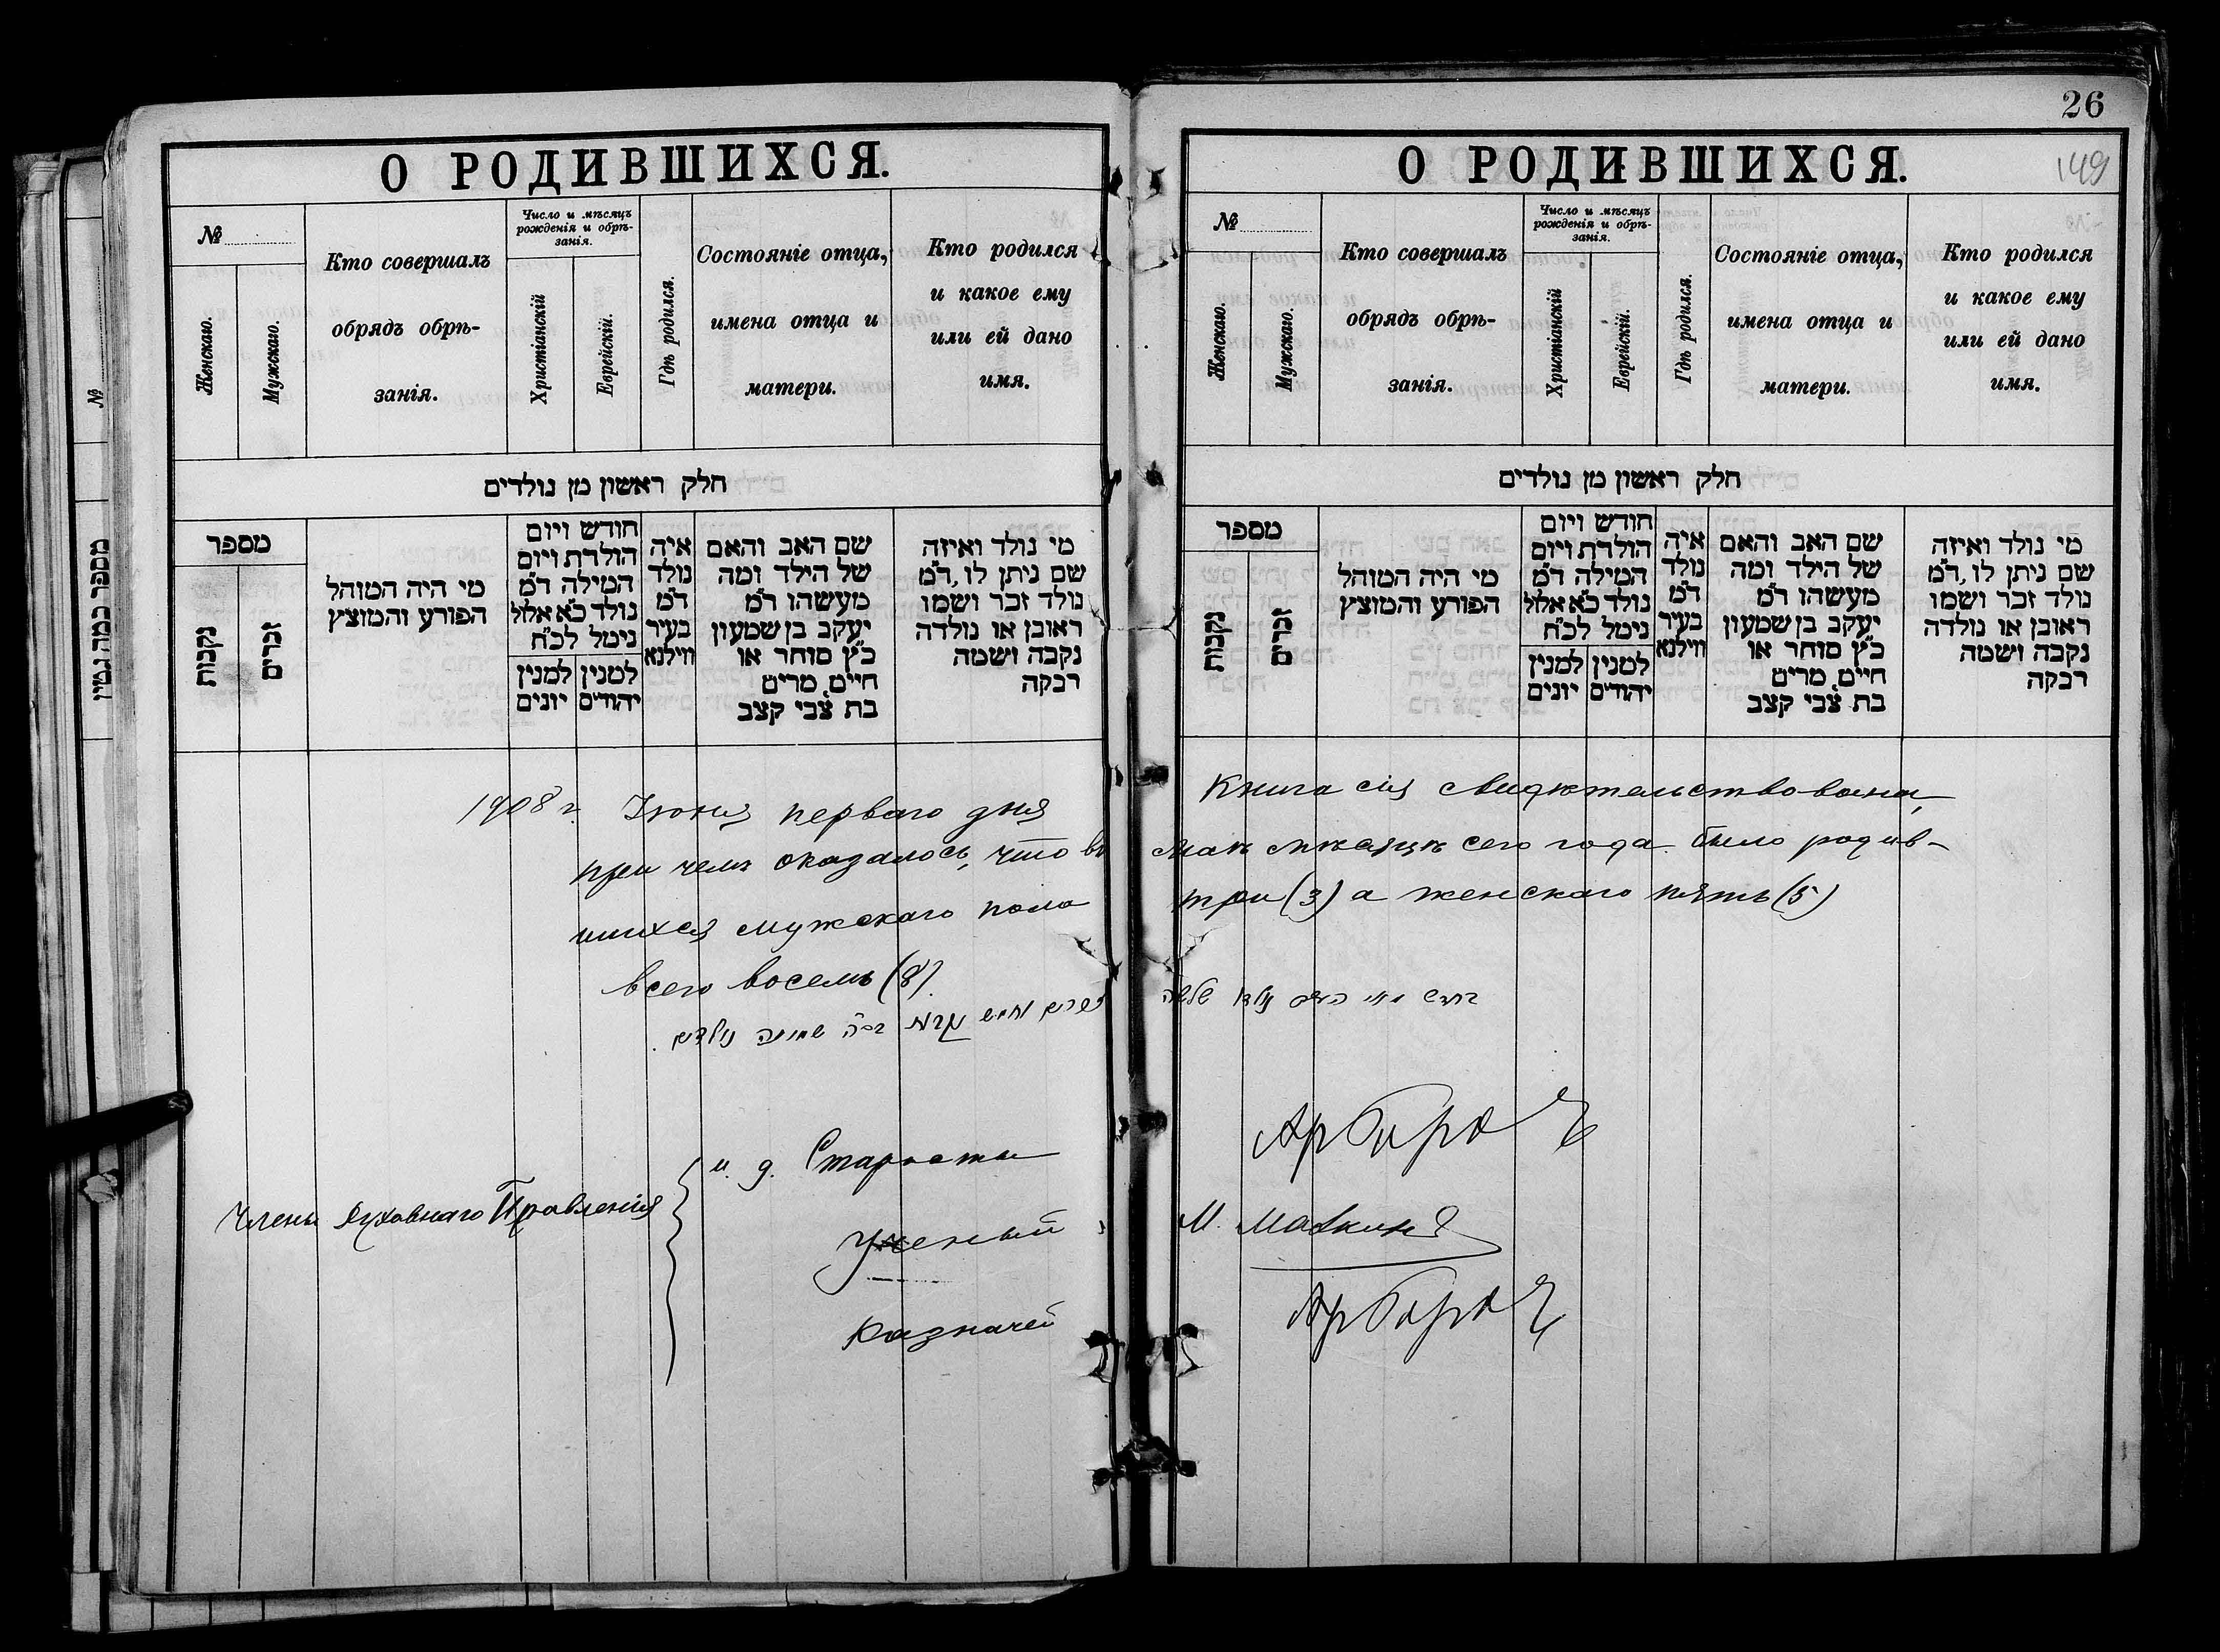 26
149
О РОДИВШИХСЯ.
№
Женскаго.
Мужскаго.
Кто совершалъ
обрядъ обрѣ-
занія.
Число и мѣсяцъ
рожденія и обрѣ-
занія.
Христіанскій
Еврейскій.
Гдѣ родился.
Состояніе отца,
имена отца и
матери.
Кто родился
и какое ему
или ей дано
имя.
חלק ראשון מן נולדים
מספר
נקבות
זכרים
מי היה המוהל
הפורע והמוצץ
חודש ויום
הולדת ויום
המילה ד״מ
נולד כ״א אלול
נימל לכ״ח
למנין יונים
למנין יהודים
איה
נולד
ד״מ
בעיר
ווילנא
שם האב והאם
של הילד ומה
מעשהו ד״מ
יעקב בן שמעון
כ״ץ סוחר או
חיים, מרים
בת צבי קצב
מי נולד ואיזה
שם ניתן לו, ד״מ
נולד זכר ושמו
ראובן או נולדה
נקבה ושמה
רבקה
О РОДИВШИХСЯ.
№
Женскаго.
Мужскаго.
Кто совершалъ
обрядъ обрѣ-
занія.
Число и мѣсяцъ
рожденія и обрѣ-
занія.
Христіанскій
Еврейскій.
Гдѣ родился.
Состояніе отца,
имена отца и
матери.
Кто родился
и какое ему
или ей дано
имя.
חלק ראשון מן נולדים
מספר
נקבות
זכרים
מי היה המוהל
הפורע והמוצץ
חודש ויום
הולדת ויום
המילה ד״מ
נולד כ״א אלול
נימל לכ״ח
למנין יונים
למנין יהודים
איה
נולד
ד״מ
בעיר
ווילנא
שם האב והאם
של הילד ומה
מעשהו ד״מ
יעקב בן שמעון
כ״ץ סוחר או
חיים, מרים
בת צבי קצב
מי נולד ואיזה
שם ניתן לו, ד״מ
נולד זכר ושמו
ראובן או נולדה
נקבה ושמה
רבקה
№
מספר כמה גטין
1908 г. Іюня перваго дня Книга сія свидѣтельствована,
при чемъ оказалось, что въ маѣ мѣсяцѣ сего года было родив-
шихся мужскаго пола три (3) а женскаго пять (5)
всего восемь (8).
חדש מיי נולדו שלשה
שמונה נולדים.
Члены Духовнаго Правленія
и. д. Старосты
Ученый М. Малкинъ
Казначей